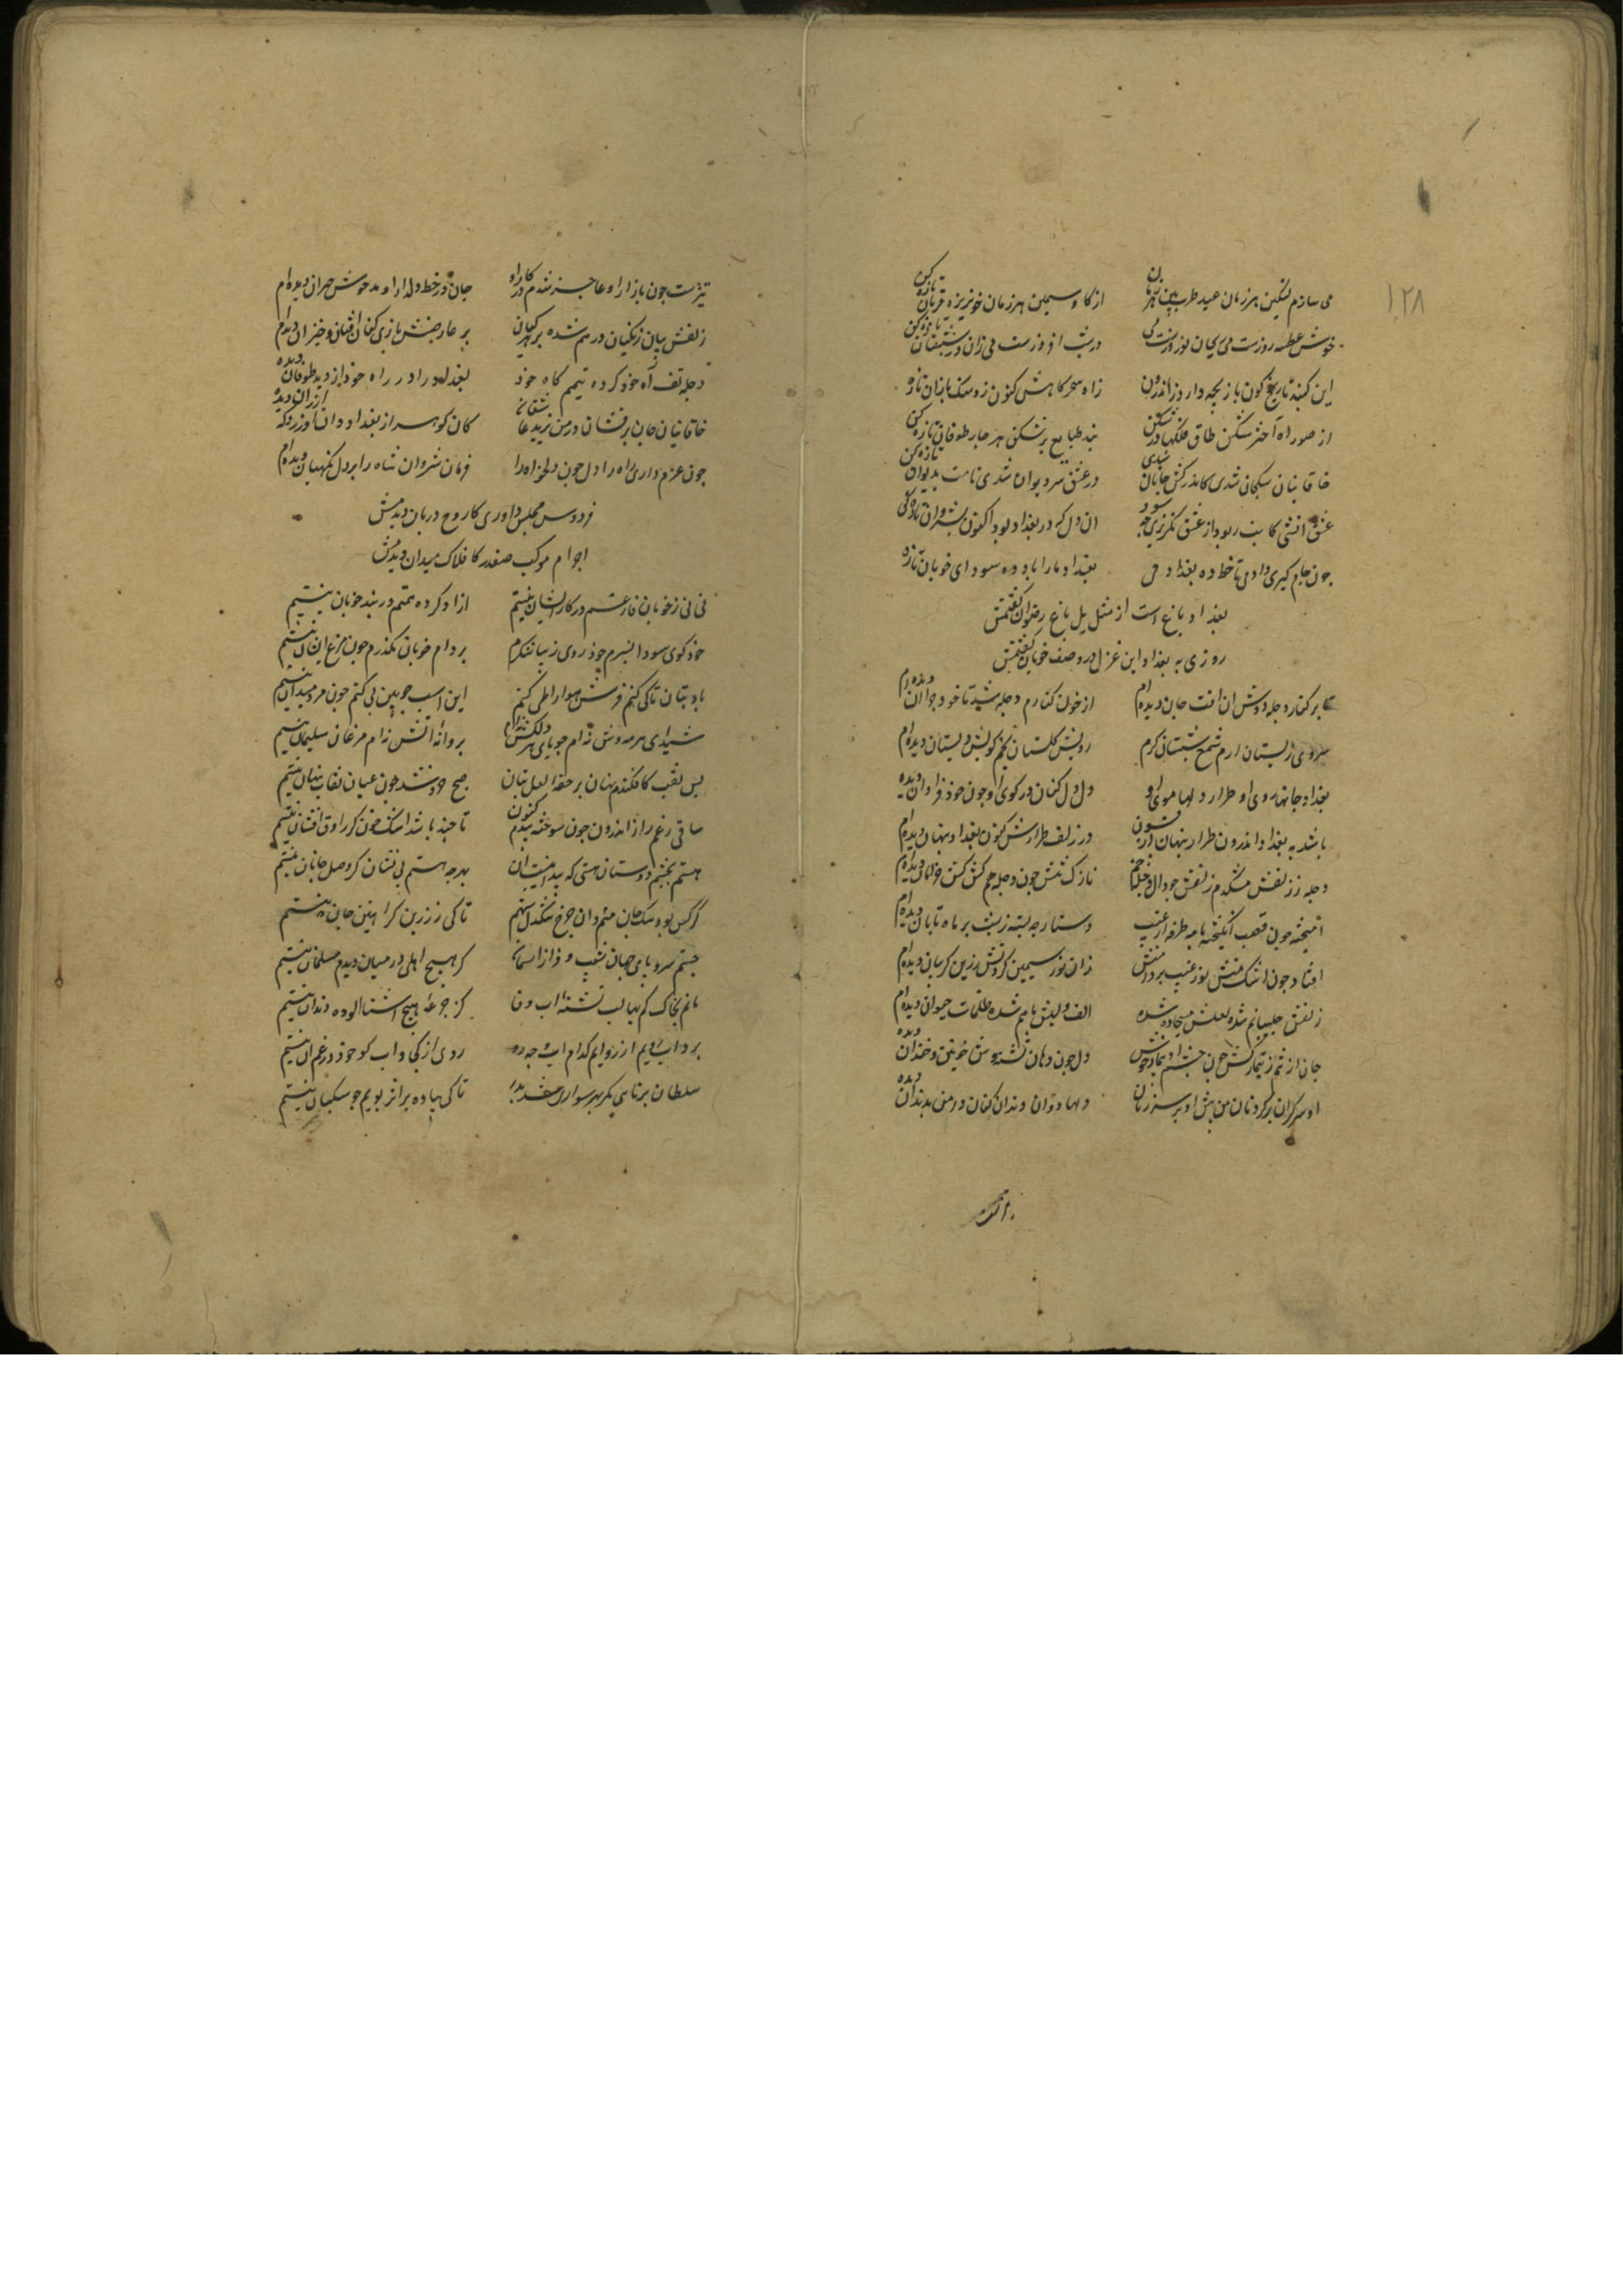 ۱۲۸
می سازم لنکین هر زمان عید طرب بین هر زمان از کاو سیمین هر زمان خونریز و قربان تازه کن
خوش عطسه روزست می ریحان نوروزست می در شب افروزست می زان در شبستان تازه کن
این کنبد نارنج کون بازیچه دارد ز اندرون زاه سحرکاهش کنون رو سنک باران تازه کن
از صور اه اختر شکن طاق فلکها در شکن بند طبایع برشکن هر چار طوفان تازه کن
خاقانیان سکجان شدی کاندر کش جانان شدی در عشق سردیوان شدی نامت بدیوان تازه کن
عشق اتشی کابت ربود از عشق نکریزی چه سود ان دل که در بغداد بود اکنون بشروان تازه کن
چون جام کیری داد می تا خط ده بغداد می بغداد ما را باد ده سودای خوبان تازه
بغداد باغ است از مثل بل باغ رضوان کفتمش
روزی به بغداد این غزل در وصف خوبان کفتمش
بر کنار دجله دوش ان افت جان دیده ام از خون کنارم دجله شد تا خود چو ان دیده ام
سروی ز بستان ارم شمع شبستان کرم رویش کلستان عجم کویش دبستان دیده ام
بغداد جانها روی او طرار دلها موی او دل دل کنان در کوی او چون خود فراوان دیده
باشد به بغداد اندرون طرار پنهان از فسون در زلف طرارش کنون بغداد پنهان دیده ام
دجله ز زلفش مشکدم زلفش چو دال دجله خم نازک تنش چون دجله هم کش کش خرامان دیده ام
امیخته چون قصب انکیخته مه طرفه از عنب دستارچه بسته ز شب بر ماه تابان دیده ام
افتاد چون اشک منش نور غبغب بر دامنش زان نور سیمین کردنش زرین کریبان دیده ام
زلفش چلیپا خم شده لعلش مسیحا دم شده الف و لبش با هم شده ظلمات حیوان دیده ام
جان از تنم ز تیمار کش چون چشم او بیمار خوش دل چون دهان تشنه وش خونین و خندان دیده
او سرکران با کردنان من پیش او بر سر زنان دلها دوان دندان کنان دامن بدندان دیده
تیزست چون بازار او عاجز شدم در کار او جان در خط دلدار او مدهوش حیران دیده ام
زلفش بسان زنکیان درهم شده بر هر کران بر عارضش بازی کنان افتان و خیزان دیده ام
دجله تف اه خود کرده تیمم کاه خود بغداد را در راه خود از دیده طوفان دیده
خاقانیان جان برفشان در من یزید عاشقان کان کوهر از بغداد دان اورزو که ارزان دیده
چون عزم داری راه را دل چون دهم دلخواه را فرمان شروان شاه را بر دل نکهبان دیده ام
فردوس مجلس داوری کارواح دربان دیدمش
اجرام موکب صفدر کافلاک میدان دیدمش
نی نی ز خوبان فارغم در کار ایشان نیستم ازاد کرده همتم در بند خوبان نیستم
خود کوی سودا نسپرم خود روی زیبا ننکرم بر دام خوبان نکذرم چون مرغ ایشان نیستم
با دبستان تا کی کنم فرش هوا را طی کنم این اسب چوبین پی کنم چون مرد میدان نیستم
شیدای هر مه وش نه ام جویای هر دلکش نه ام پروانه اتش نه ام مرغان سلیمان نیستم
بس نقب کافکندم نهان بر حقه لعل بتان صبح خود شد چون عیان نقاب پنهان نیستم
ساقی رنجم راز اندرون چون سوخته بیدم کنون تا چند باشد اشک خون کر راوق افشان نیستم
هستم بچشم دوستان هستی که پیدا نیست ان بهر چه هستم بی نشان کر وصل جانان نیستم
کر کس بود سنک جان منم وان چرخ سنکدل نیم تا کی ز زرین کر اهنین جان نیستم
جستم سر و پای جهان شیب و فراز اسمان کر هیچ اهلی در میان دیدم مسلمان نیستم
مانم بخاک کم بها لب تشنه اب وفا کز جرعه هیچ اشنا الوده دندان نیستم
بر داب رویم ارزو ایم کدام اب و چه رو روی از کجا و اب کو خود در غم ان نیستم
سلطان سوار تا کی پیاده بر اثر پویم چو سکبان نیستم